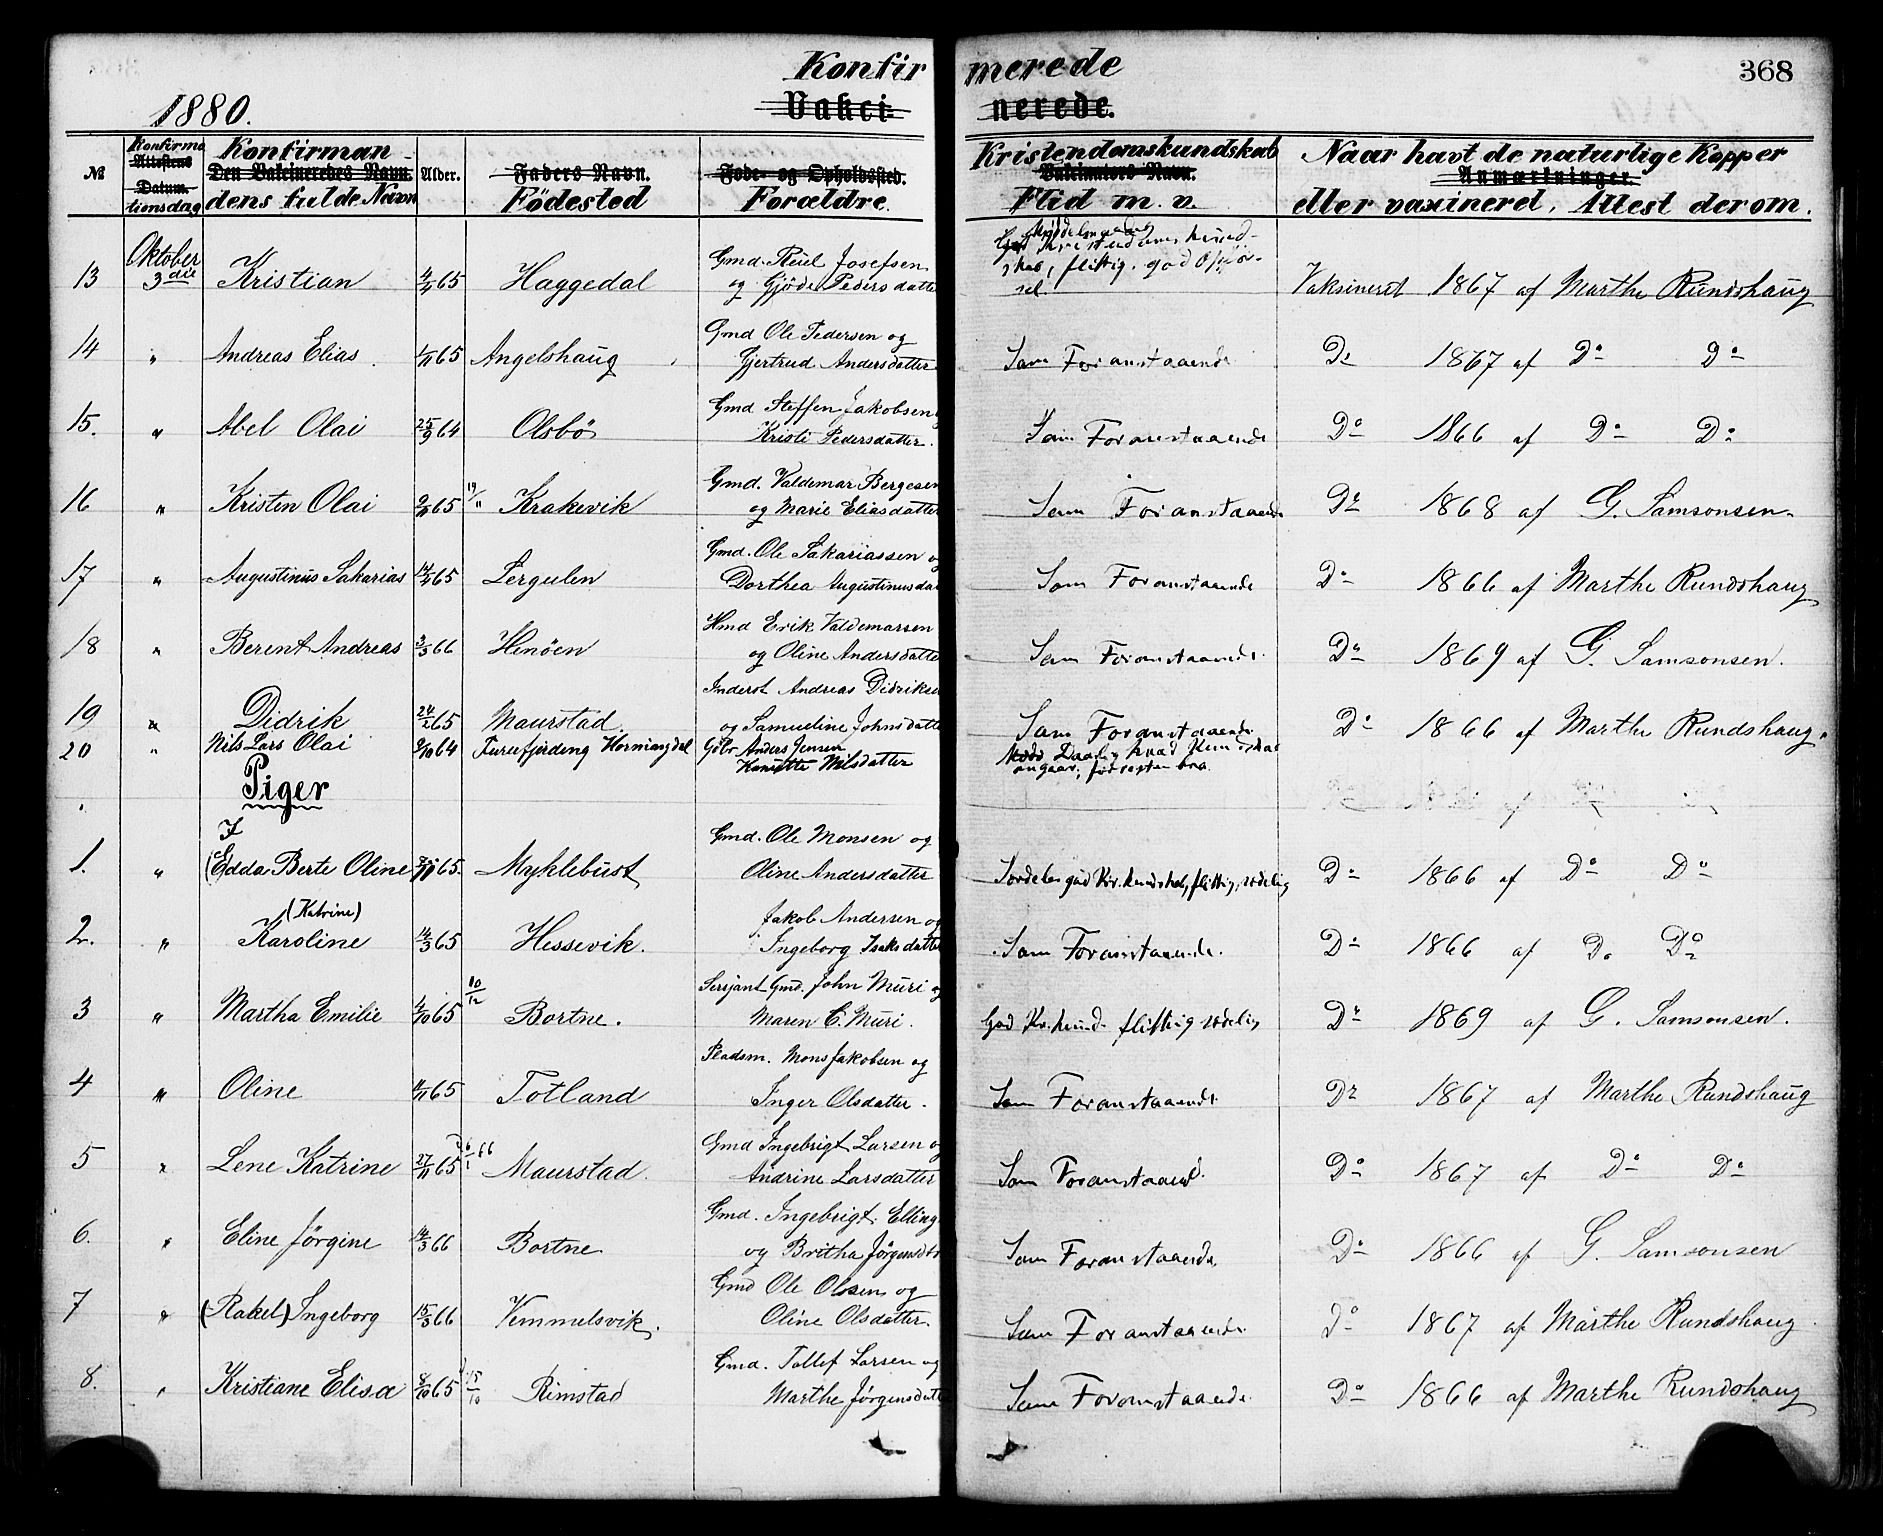 Konfirmerede
368
1880.
Vakcinerede.
№ Konfirma Attestens Datum. tionsdag Konfirman Den Vakcineredes Navn. dens fulde Navn Alder. Faders Navn. Födested Føde- og Opholdssted. Forældre. Kristendomskundskab Vakcinators Navn. Flid m. v. Naar havt de naturlige Kopper Anmærkninger. eller vaxineret, Attest derom.
Oktober Gmd. Josefsen Middelmaadig Kristendomskund-
13 3die Kristian 65 Haggedal og Gjøde Pedersdatter skab, flittig, god Opførsel Vaksineret 1867 af Marthe Rundshaug
Gmd Ole Pedersen og
14 " Andreas Elias 65 Angelshaug Gjertrud Andersdatter Som Foranstaaende Do 1867 af Do Do
Gmd Steffen Jakobsen
15. " Abel Olai 25/9 64 Olsbø Kristi Pedersdatter. Som Foranstaaende Do 1866 af Do Do
Gmd. Valdemar Bergesen
16 " Kristen Olai 65 19/" Krakevik og Marie Eliasdatter Som Foranstaaende Do 1868 af G. Samsonsen.
Gmd. Ole Sakariassen og
17 " Augustinus Sakarias 65 Lergulen Dorthea Augustinusdat Som Foranstaaende Do 1866 af Marthe Rundshaug
Hmd Erik Valdemarsen
18 " Berent Andreas 3/3 66 Henøen og Oline Andersdatter Som Foranstaaende Do 1869 af G. Samsonsen.
Inderst Andreas Didriksen
19 " Didrik 24/2 65 Maurstad og Samueline Johnsdatter Som Foranstaaende Do 1866 af Marthe Rundshaug.
20 " Nils Lars Olai 9/10 64 Hornindal Anders Jensen Daarlig hvad Kundskab
Nilsdatter angaar, forresten bra.
Piger
Gmd. Ole Monsen og
1. " (Edda Berte Oline 65. Myklebust Oline Andersdatter Særdeles god Kr. kundskab, flittig, sædelig Do 1866 af Do Do
(Katrine) Jakob Andersen og
2. " Karoline 14/3 65 Hessevik. Ingeborg Isaksdatter Som Foranstaaende. Do 1866 af Do Do
10/12 Serjant Gmd. John Muri og
3 " Martha Emilie 4/10 65 Bortne. Maren E. Muri. God Kr. kund. flittig sædelig Do 1869 af G. Samsonsen.
Pladsm. Mons Jakobsen og
4 " Oline 65 Totland Inger Olsdatter. Som Foranstaaende Do 1867 af Marthe Rundshaug
Gmd Ingebrigt Larsen og
5 " Lene Katrine 27/11 65 66 Maurstad. Andrine Larsdatter Som Foranstaaend. Do 1867 af Do Do
Gmd. Ingebrigt. Elling
6. " Eline Jørgine 14/3 66 Bortne og Britha Jørgensdtr Som Foranstaaende. Do 1866 af G. Samsonsen
Gmd Ole Olssen og
7 " (Rakel) Ingeborg 15/3 66 Vemmelsvik. Oline Olsdatter. Som Foranstaaende Do 1867 af Marthe Rundshaug
Gmd. Tollef Larsen og
8. " Kristiane Elisa 8/10 65 15/10 Rimstad Marthe Jørgensdatter Som Foranstaaende. Do 1866 af Marthe Rundshaug